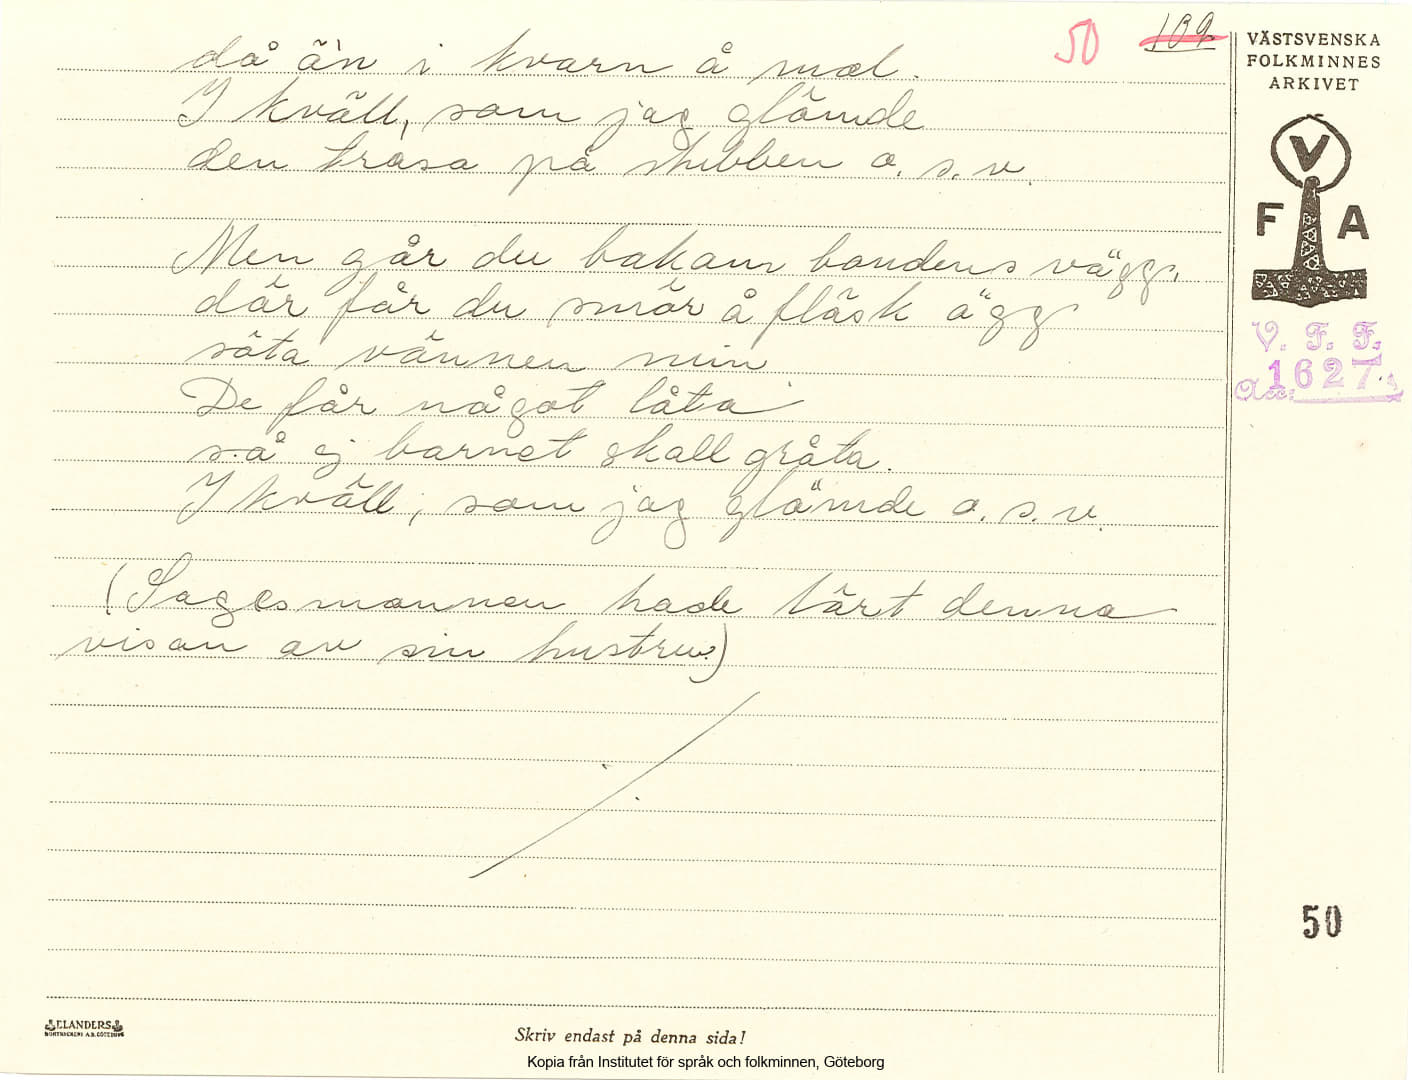 50 109
då än i kvarn å mal.
I kväll, som jag glömde
den trasa på stubben o. s. v.
Men går du bakom bondens vägg,
där får du smör å fläsk ägg
söta vännen min
De får något låta
så ej barnet skall gråta.
I kväll, som jag glömde o. s. v.
(Sagesmannen hade lärt denna
visan av sin hustru.)
VÄSTSVENSKA
FOLKMINNES
ARKIVET
V
F A
V. F. F.
Acc. 1627
50
ELANDERS
BOKTRYCKERI A.B. GÖTEBORG
Skriv endast på denna sida!
Kopia från Institutet för språk och folkminnen, Göteborg